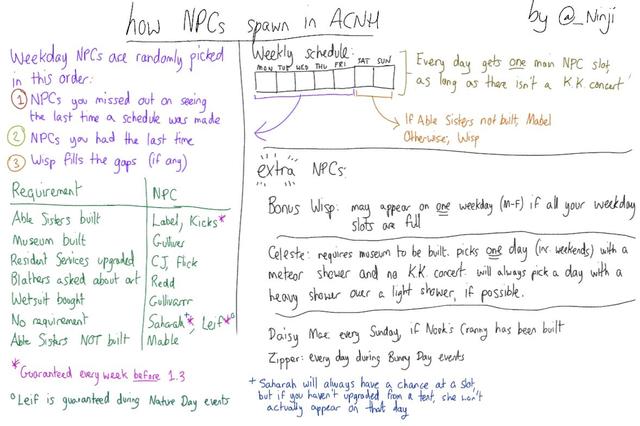 how NPCs spawn in ACNH
by @_Ninji
Weekday NPCs are randomly picked
in this order:
1 NPCs you missed out on seeing
the last time a schedule was made
2 NPCs you had the last time
3 Wisp fills the gaps (if any)
Requirement NPC
Able Sisters built Label, Kicks*
Museum built Gulliver
Resident Services upgraded CJ, Flick
Blathers asked about art Redd
Wetsuit bought Gullivarrr
No requirement Saharah+*, Leif*°
Able Sisters NOT built Mable
*Guaranteed every week before 1.3
°Leif is guaranteed during Nature Day events
Weekly schedule:
MON TUE WED THU FRI SAT SUN
Every day gets one main NPC slot,
as long as there isn't a K.K. concert
If Able Sisters not built, Mabel
Otherwise, Wisp
extra NPCs:
Bonus Wisp: may appear on one weekday (M-F) if all your weekday
slots are full
Celeste: requires museum to be built. picks one day (inc. weekends) with a
meteor shower and no K.K. concert. will always pick a day with a
heavy shower over a light shower, if possible.
Daisy Mae: every Sunday, if Nook's Cranny has been built
Zipper: every day during Bunny Day events
+ Saharah will always have a chance at a slot,
but if you haven't upgraded from a tent, she won't
actually appear on that day